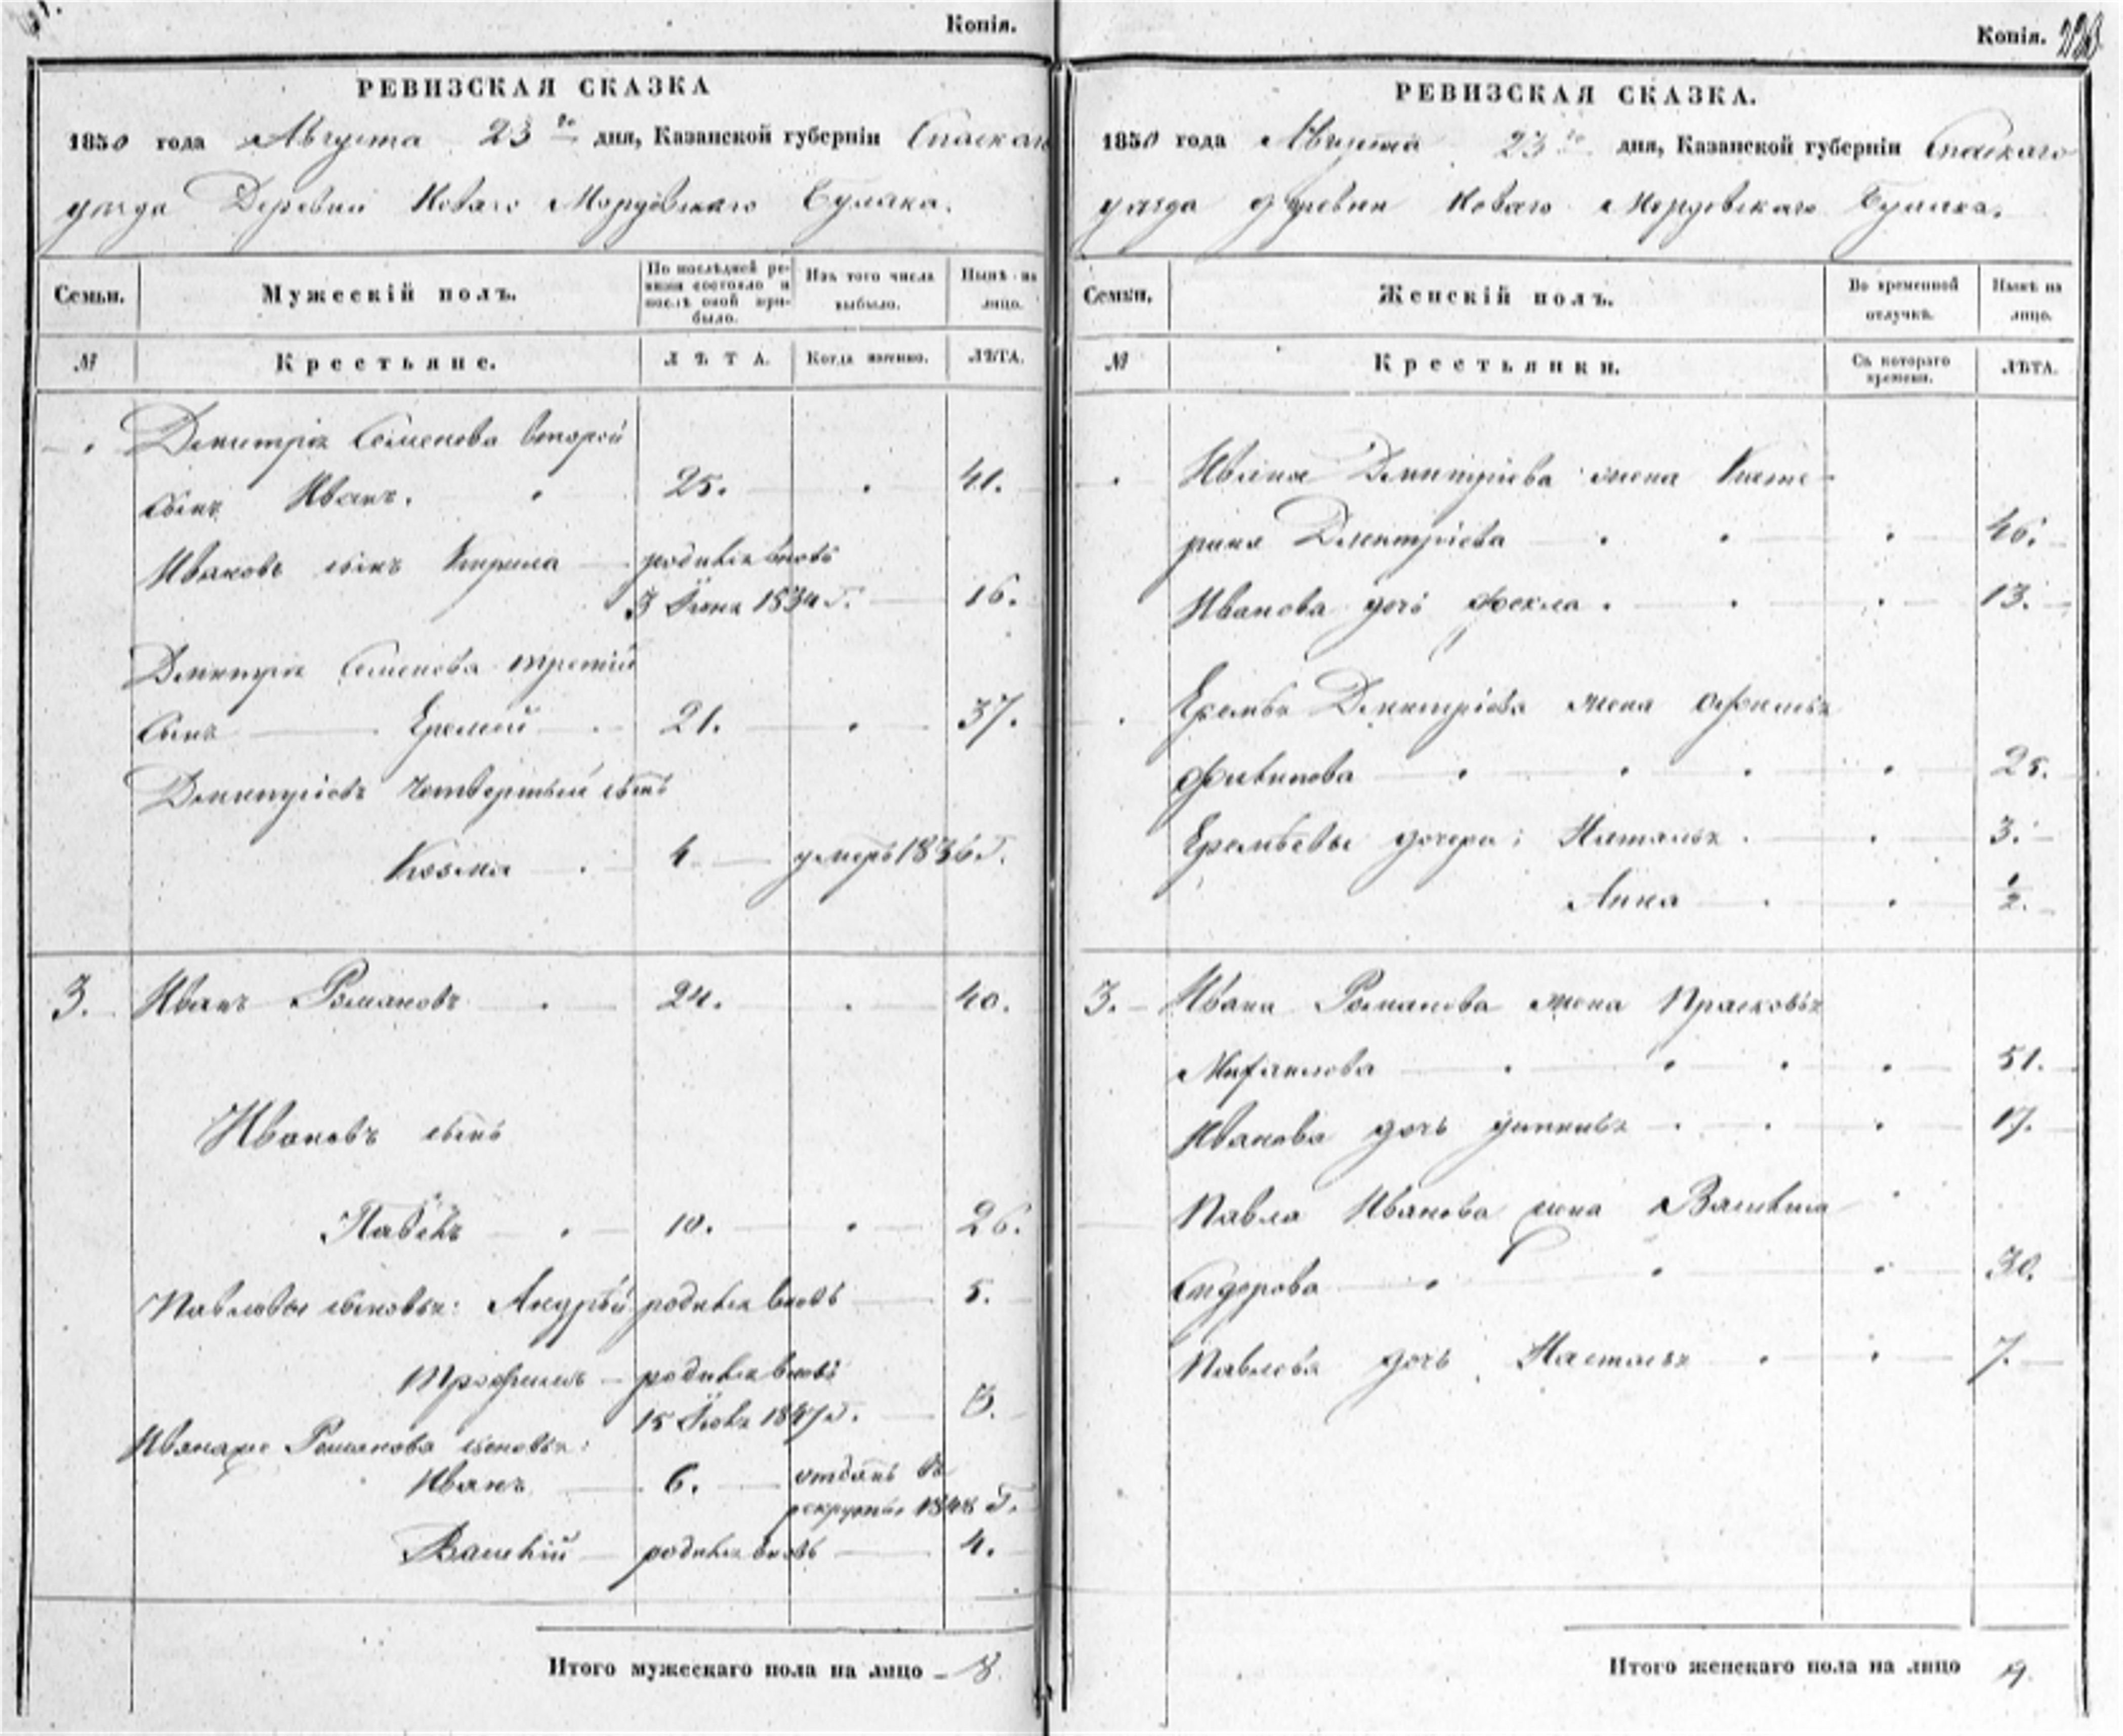 Копія.
РЕВИЗСКАЯ СКАЗКА
1850 года Августа 23го дня, Казанской губерніи Спаскаго
уезда Деревни Новаго Мордовскаго Буляка.
Семьи.
Мужескій полъ.
По послѣдней ре-
визіи состояло и
послѣ оной при-
было.
Изъ того числа
выбыло.
Нынѣ на
лицо.
№
Крестьяне.
ЛѢТА.
Когда именно.
ЛѢТА.
Дмитрія Семенова второй
сынъ Иванъ. 25. 41.
Ивановъ сынъ Кирила родился вновь
3 Іюня 1834 г. 16.
Дмитрія Семенова третій
Сынъ Еремей 21. 37.
Дмитріевъ четвертый сынъ
Козма 4 умеръ 1836 г.
3. Иванъ Романовъ 24. 40.
Ивановъ сынъ
Павелъ 10. 26.
Павловы сыновья: Андрей родился вновь 5.
Трофимъ родился вновь
15 Іюля 1847 г. 3.
Иванаже Романова сыновья:
Иванъ 6. отданъ въ
рекруты 1848 г.
Василій родился вновь 4.
Итого мужескаго пола на лицо 8.
Копія.
РЕВИЗСКАЯ СКАЗКА.
1850 года Августа 23го дня, Казанской губерніи Спаскаго
уезда деревни Новаго Мордовскаго Буляка.
Семьи.
Женскій полъ.
Во временной
отлучкѣ.
Нынѣ на
лицо.
№
Крестьянки.
Съ котораго
времени.
ЛѢТА.
Ивана Дмитріева жена Кате-
рина Дмитріева 46.
Иванова дочь Фекла. 13.
Еремея Дмитріева жена
Филипова 25.
Еремеевы дочери: Наталья 3.
Анна 1/2.
3. Ивана Романова жена Прасковья
Михаилова 51.
Иванова дочь 17.
Павла Иванова жена Василиса
Сидорова 30.
Павлова дочь Настасья 7.
Итого женскаго пола на лицо 9.